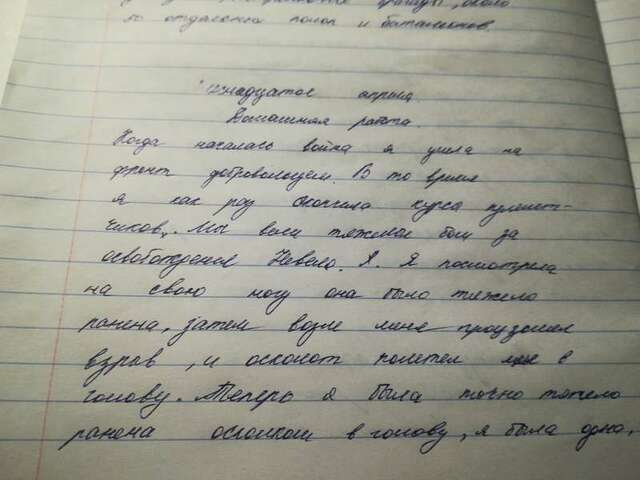 то отдаленных полов и батальонов.
12надцатое апреля.
Домашняя работа.
Когда началась война я ушла на
фронт добровольцем. В то время
я как раз окончила курса пулемет-
чиков. Мы вели тяжелые бои за
освобождение Невеля. Я. Я посмотрела
на свою ногу она было тяжело
ранена, затем возле меня произошел
взрыв, и осколот полетел мне в
голову. Теперь я была точно тяжело
ранена осколком в голову, я была одна,